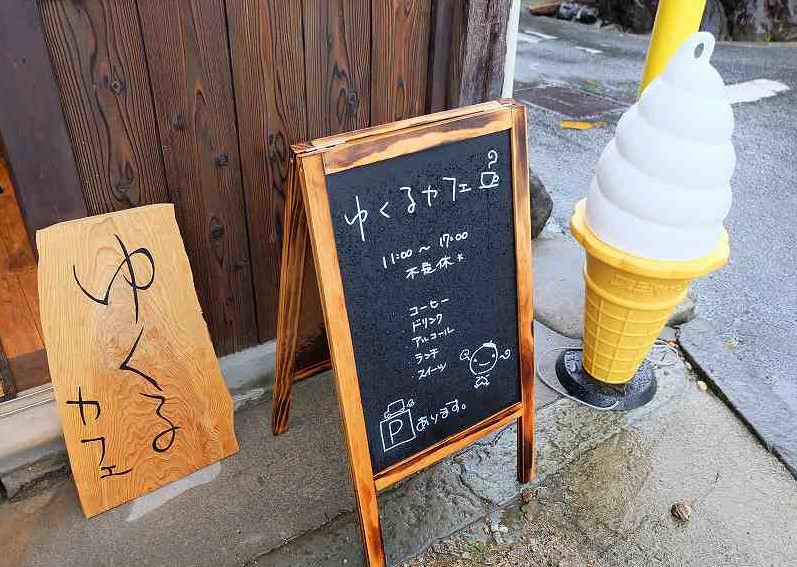 ゆくる
カフェ
ゆくるカフェ
11:00 ～ 17:00
不定休*
コーヒー
・ドリンク
アルコール
・ランチ
・スイーツ
P あります。